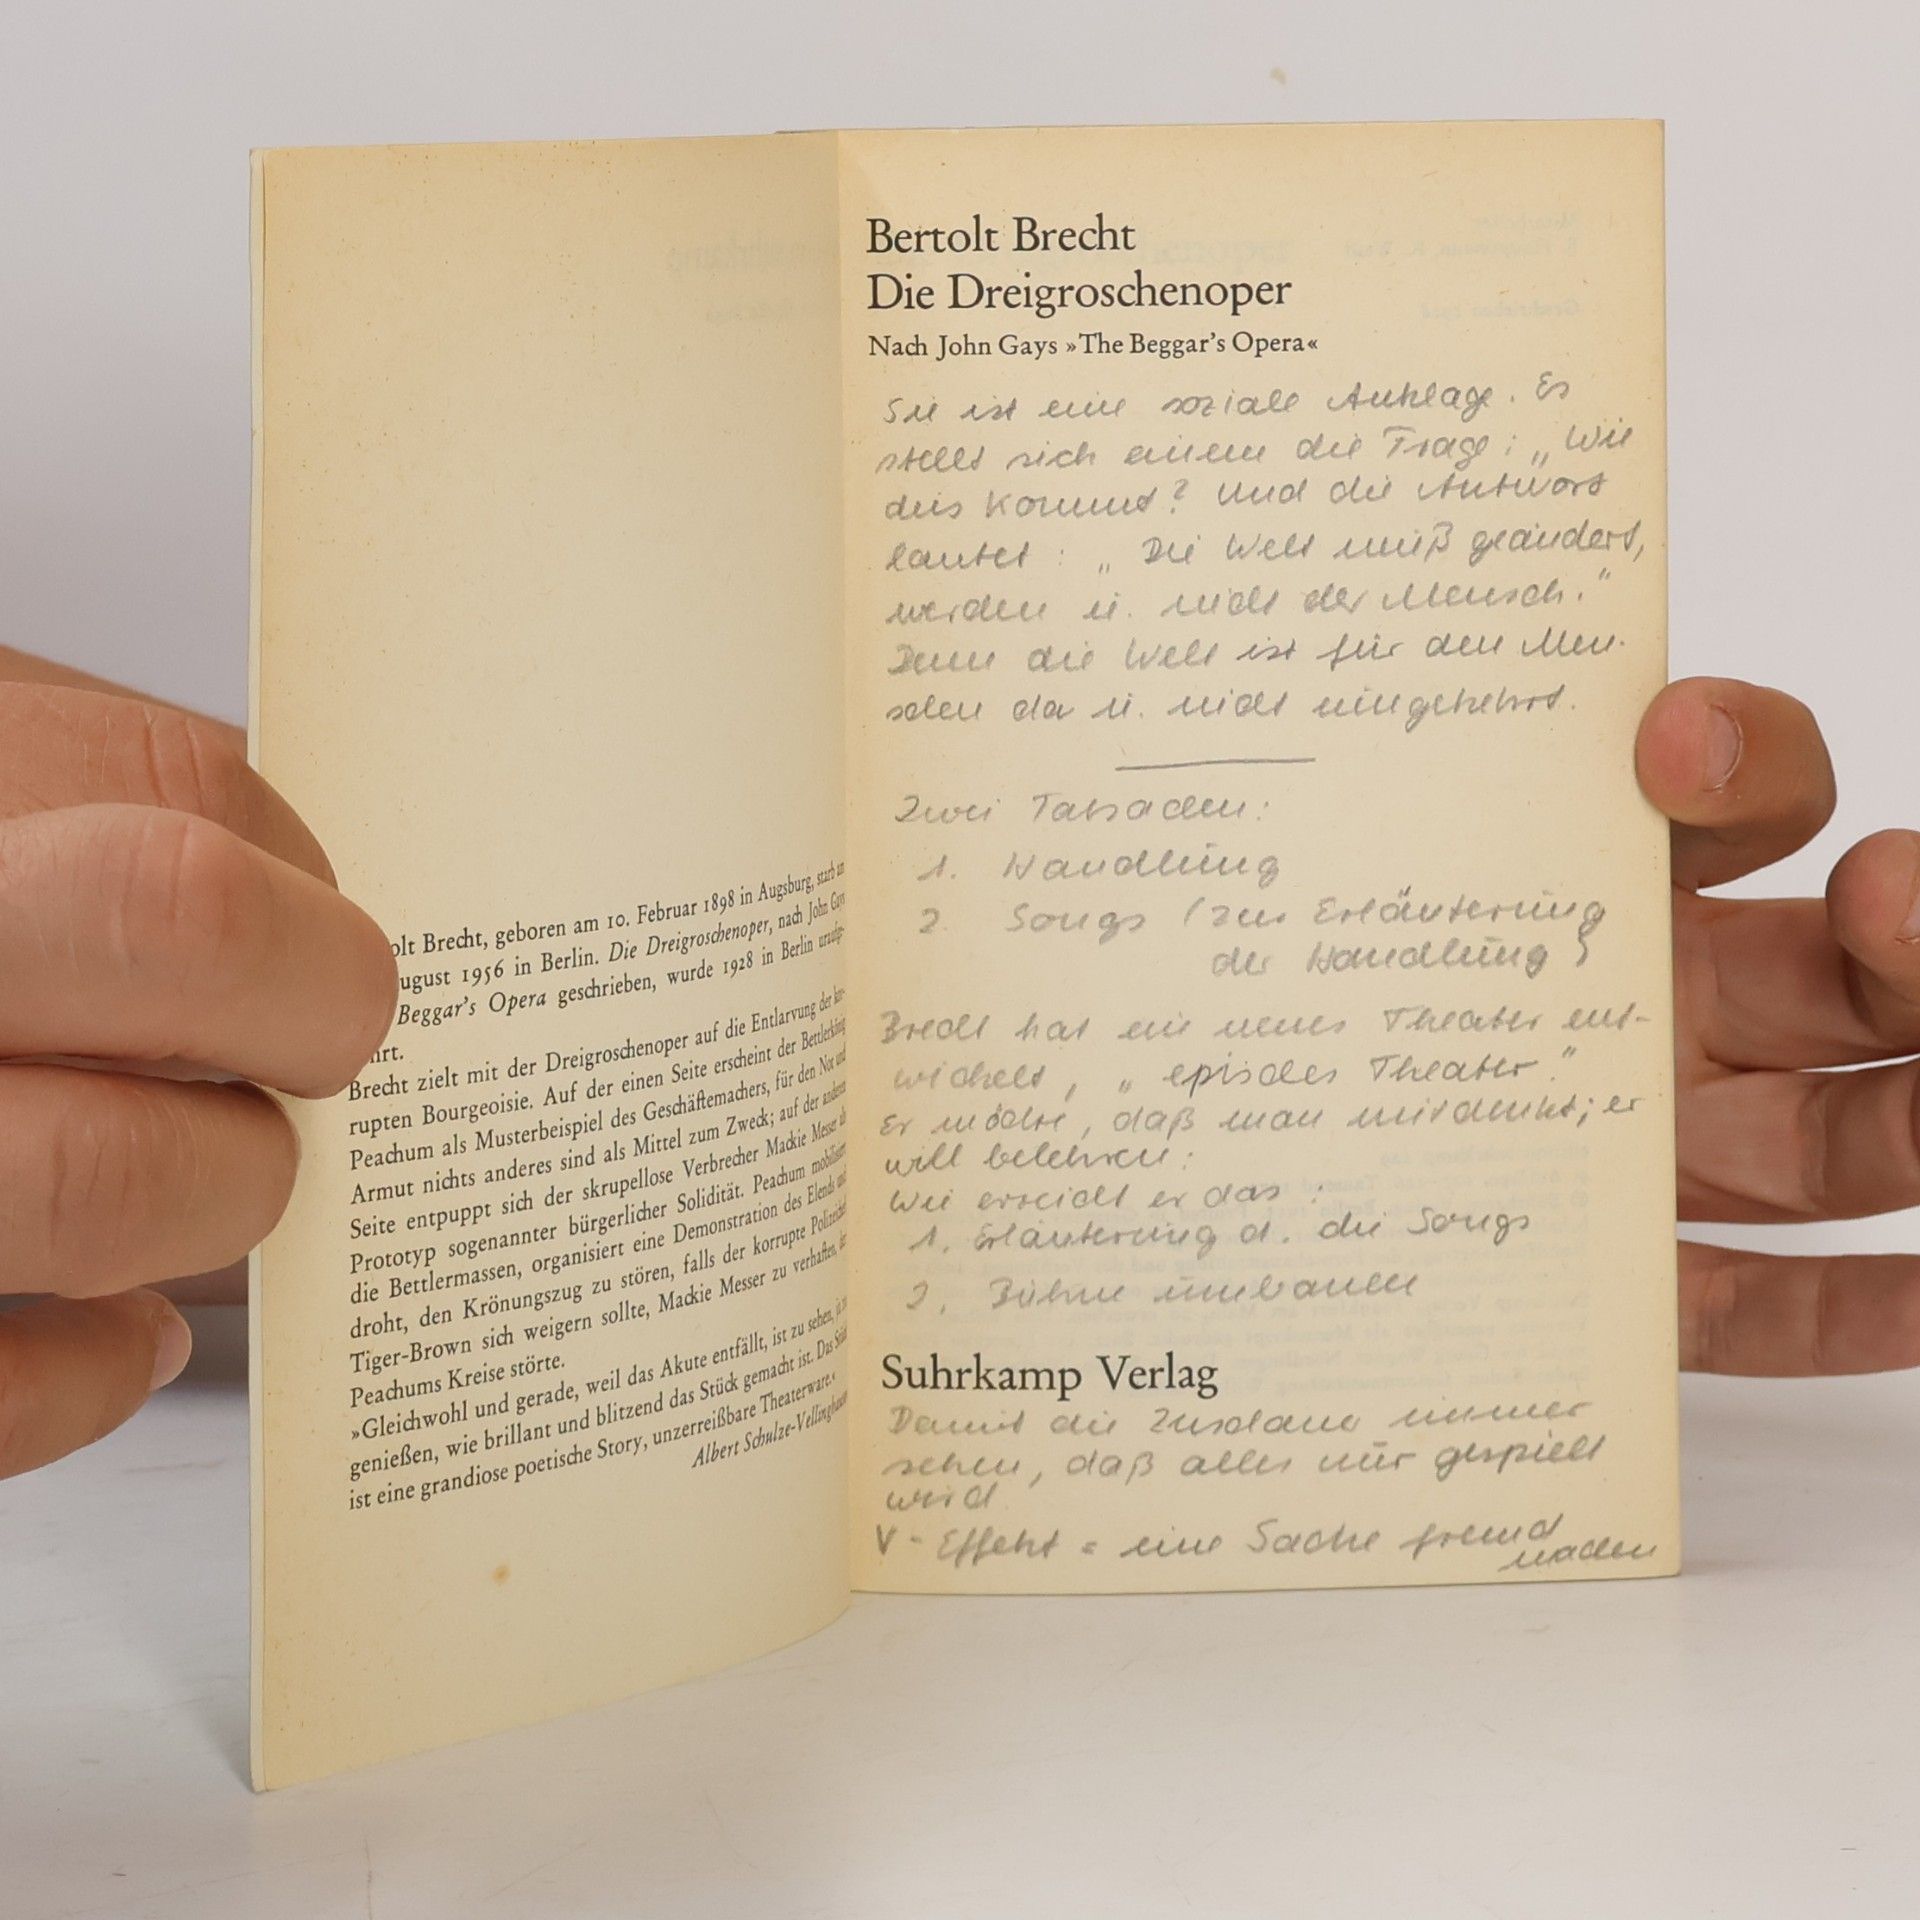 olt Brecht, geboren am 10. Februar 1898 in Augsburg, starb am
ugust 1956 in Berlin. Die Dreigroschenoper, nach John Gays
Beggar's Opera geschrieben, wurde 1928 in Berlin uraufge-
hrt.
Brecht zielt mit der Dreigroschenoper auf die Entlarvung der kor-
rupten Bourgeoisie. Auf der einen Seite erscheint der Bettlerkönig
Peachum als Musterbeispiel des Geschäftemachers, für den Not und
Armut nichts anderes sind als Mittel zum Zweck; auf der anderen
Seite entpuppt sich der skrupellose Verbrecher Mackie Messer als
Prototyp sogenannter bürgerlicher Solidität. Peachum mobilisiert
die Bettlermassen, organisiert eine Demonstration des Elends und
droht, den Krönungszug zu stören, falls der korrupte Polizeichef
Tiger-Brown sich weigern sollte, Mackie Messer zu verhaften, der
Peachums Kreise störte.
»Gleichwohl und gerade, weil das Akute entfällt, ist zu sehen, ja zu
genießen, wie brillant und blitzend das Stück gemacht ist. Das Stück
ist eine grandiose poetische Story, unzerreißbare Theaterware.«
Albert Schulze-Vellinghausen
Bertolt Brecht
Die Dreigroschenoper
Nach John Gays »The Beggar's Opera«
Sie ist eine soziale Anklage. Es
stellt sich einem die Frage: „Wie
das kommt? Und die Antwort
lautet: „Die Welt muß geändert,
werden u. nicht der Mensch."
Denn die Welt ist für den Men-
schen da u. nicht umgekehrt.
Zwei Tatsachen:
1. Handlung
2. Songs (zur Erläuterung
der Handlung)
Brecht hat ein neues Theater ent-
wickelt, „episches Theater."
Er möchte, daß man mitdenkt; er
will belehren:
Wie erreicht er das:
1. Erläuterung d. die Songs
2. Bühne umbauen
Suhrkamp Verlag
Damit die Zuschauer immer
sehen, daß alles nur gespielt
wird
V-Effekt = eine Sache fremd
machen